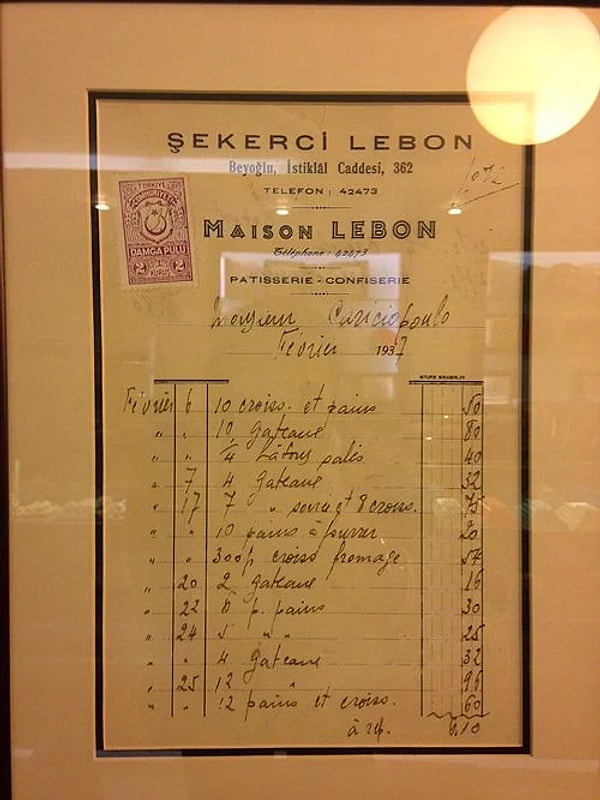 ŞEKERCİ LEBON
Beyoğlu, İstiklâl Caddesi, 362
TELEFON : 42473
1072
TÜRKİYE
CUMHURİYETİ
DAMGA PULU
2 KURUŞ 2
MAISON LEBON
Téléphone : 42473
PATISSERIE - CONFISERIE
Monsieur
Février 1937
Février 6 10 croiss. et pains 50
" " 10 gateaux 80
" " 1/4 bâtons salés 40
" 7 4 gateaux 32
" 17 7 " soirée et 8 croiss. 75
" " 10 pains à fourrer 20
" " 300 gr croiss fromage 54
" 20 2 gateaux 16
" 22 6 p. pains 30
" 24 5 " " 25
" " 4 gateaux 32
" 25 12 " 96
" " 12 pains et croiss. 60
à rep. 6,10